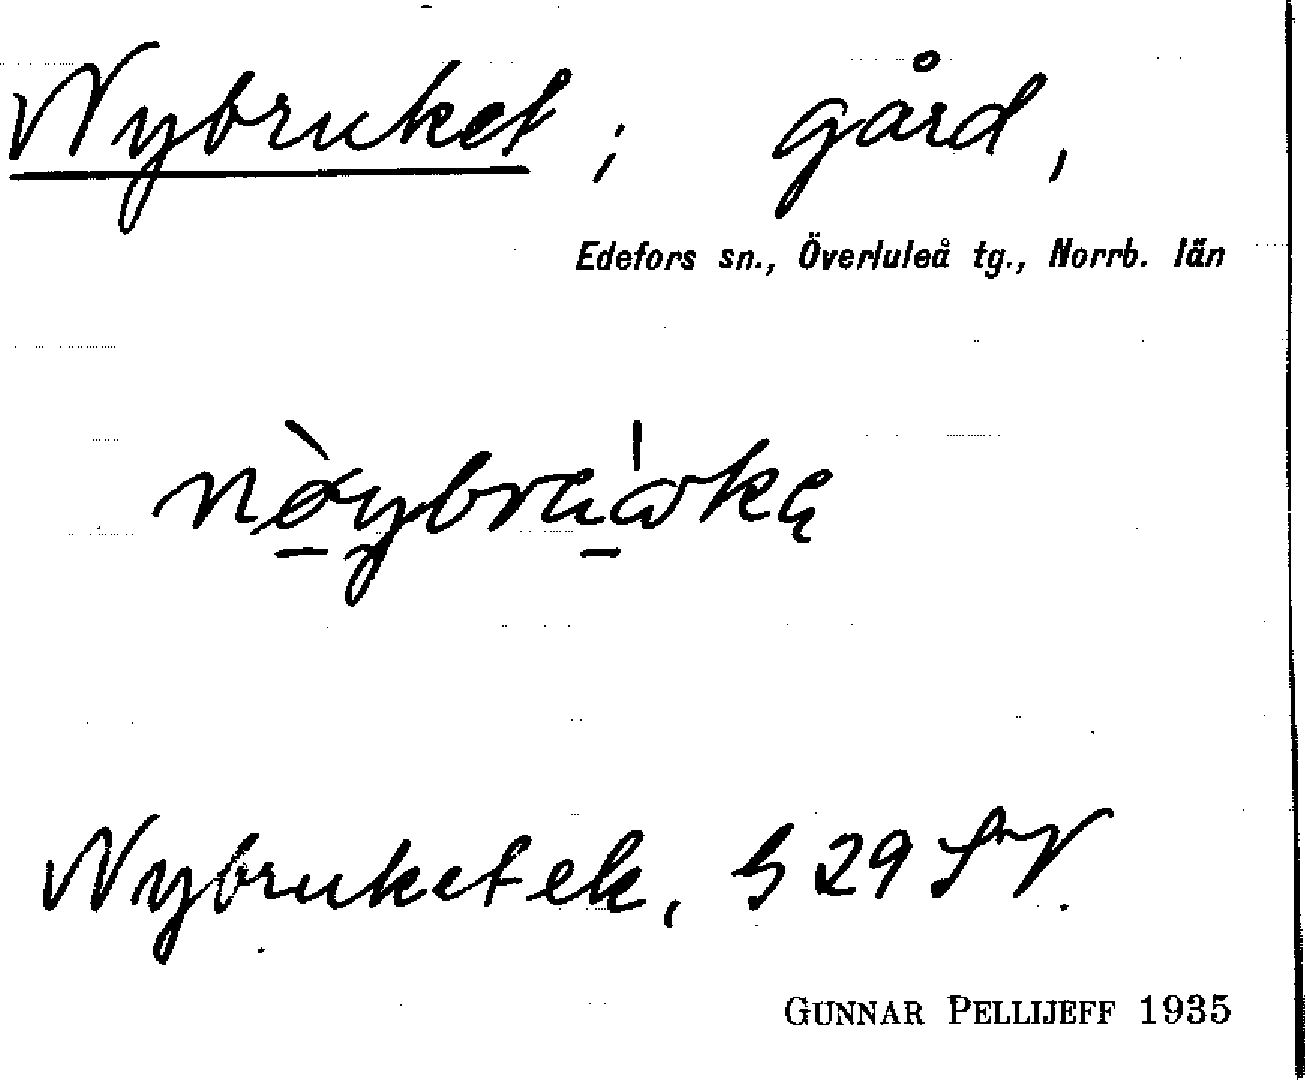 Nybruket; gård,
Edefors sn., Överluleå tg., Norrb. län
Nybruket ek, 29 SV.
GUNNAR PELLIJEFF 1935